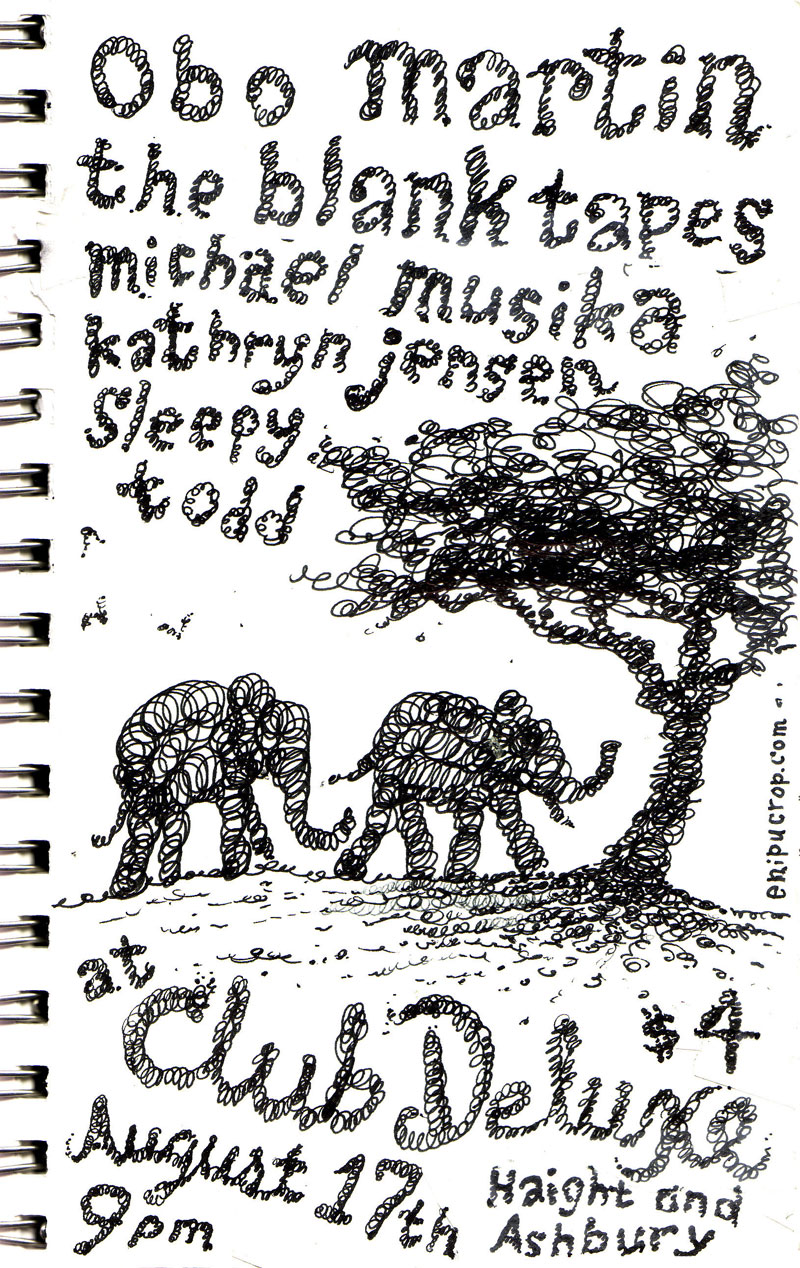 Obo martin
the blank tapes
michael musika
kathryn jensen
Sleepy
todd
enipucrop.com
at
Club Deluxe
$4
August 17th
9pm
Haight and
Ashbury